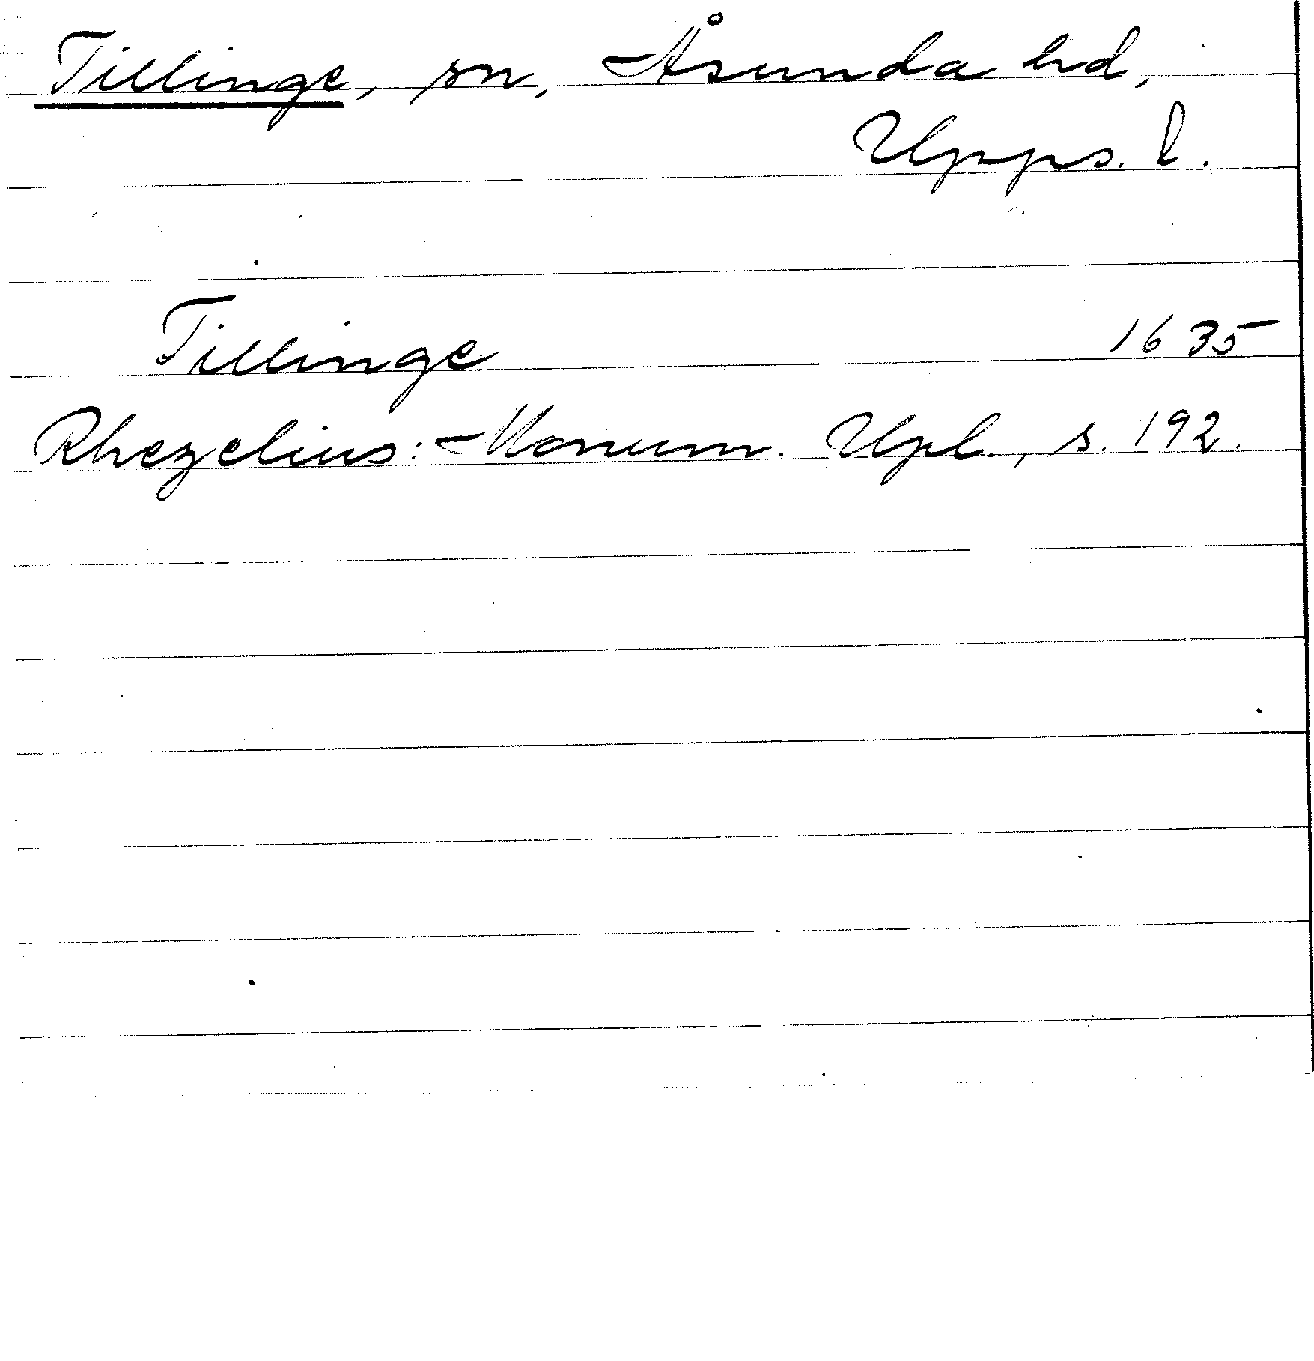 Tillinge, sn, Åsunda hd,
Upps. l.
Tillinge 1635
Rhezelius: Monum. Upl., s. 192.